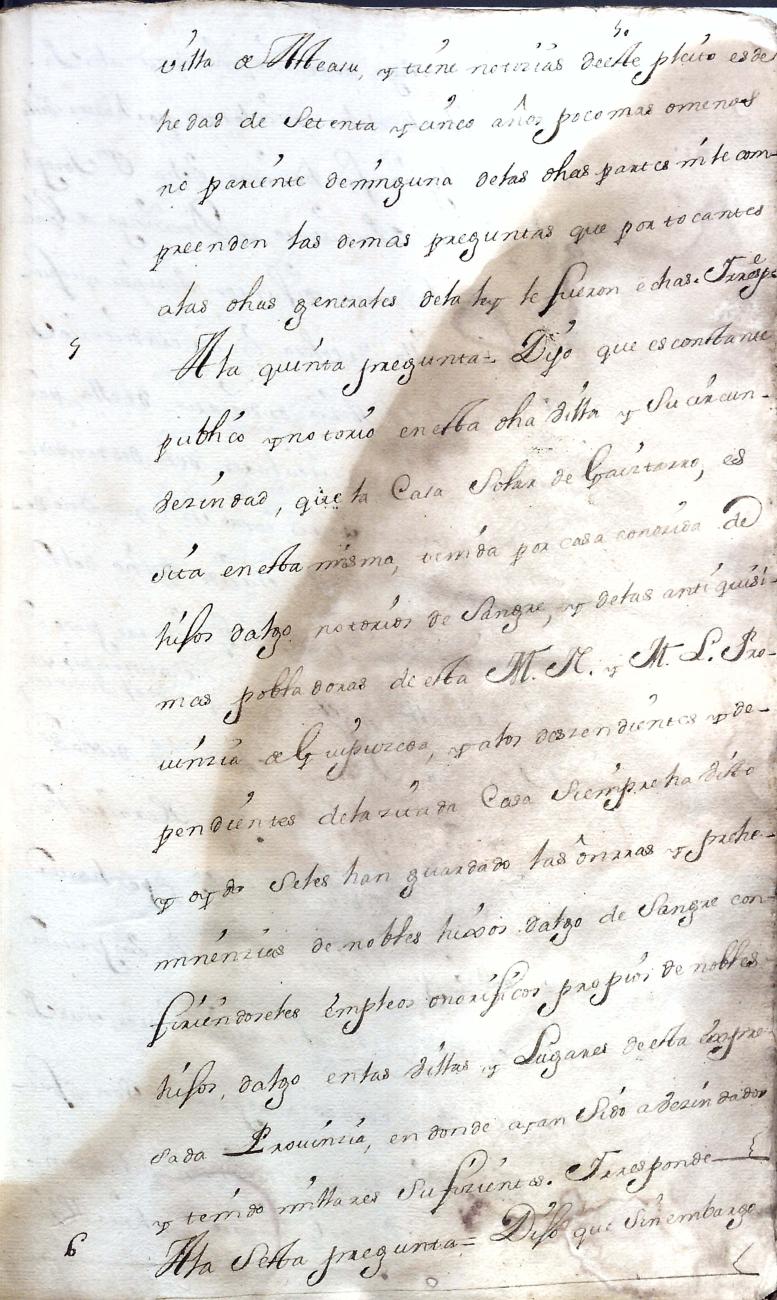 villa de Alleau, y tiene notizias deeste pleito es de
hedad de Setenta y cinco años poco mas omenos
no pariente deninguna delas dhas partes ni le com-
preenden las demas preguntas que por tocantes
alas dhas generales dela ley le fueron echas. Y rrespde
5 Ala quinta pregunta = Dijo que es constante
publico y notorio enesta dha Villa y Su circun-
vezindad, que la Casa Solar de Gaiztarro, es
sita enesta misma, tenida por casa conozida de
hisos dalgo notorios de Sangre, y delas antiquisi-
mas pobladoras de esta M. N. y M. L. Pro-
uinzia de Guipuzcoa, y alos deszendientes y de-
pendientes delazitada Casa Siempre ha visto
y oydo Seles han guardado las onrras y prehe-
minenzias de nobles hixos dalgo de Sangre con-
firiendoseles empleos onorificos propios de nobles
hisos dalgo enlas Villas y Lugares de esta expre-
sada Provinzia, en donde ayan Sido avezindados
y tenido millares Sufizientes. Y rresponde
6 Ala Sesta pregunta = Diso que Sinembargo